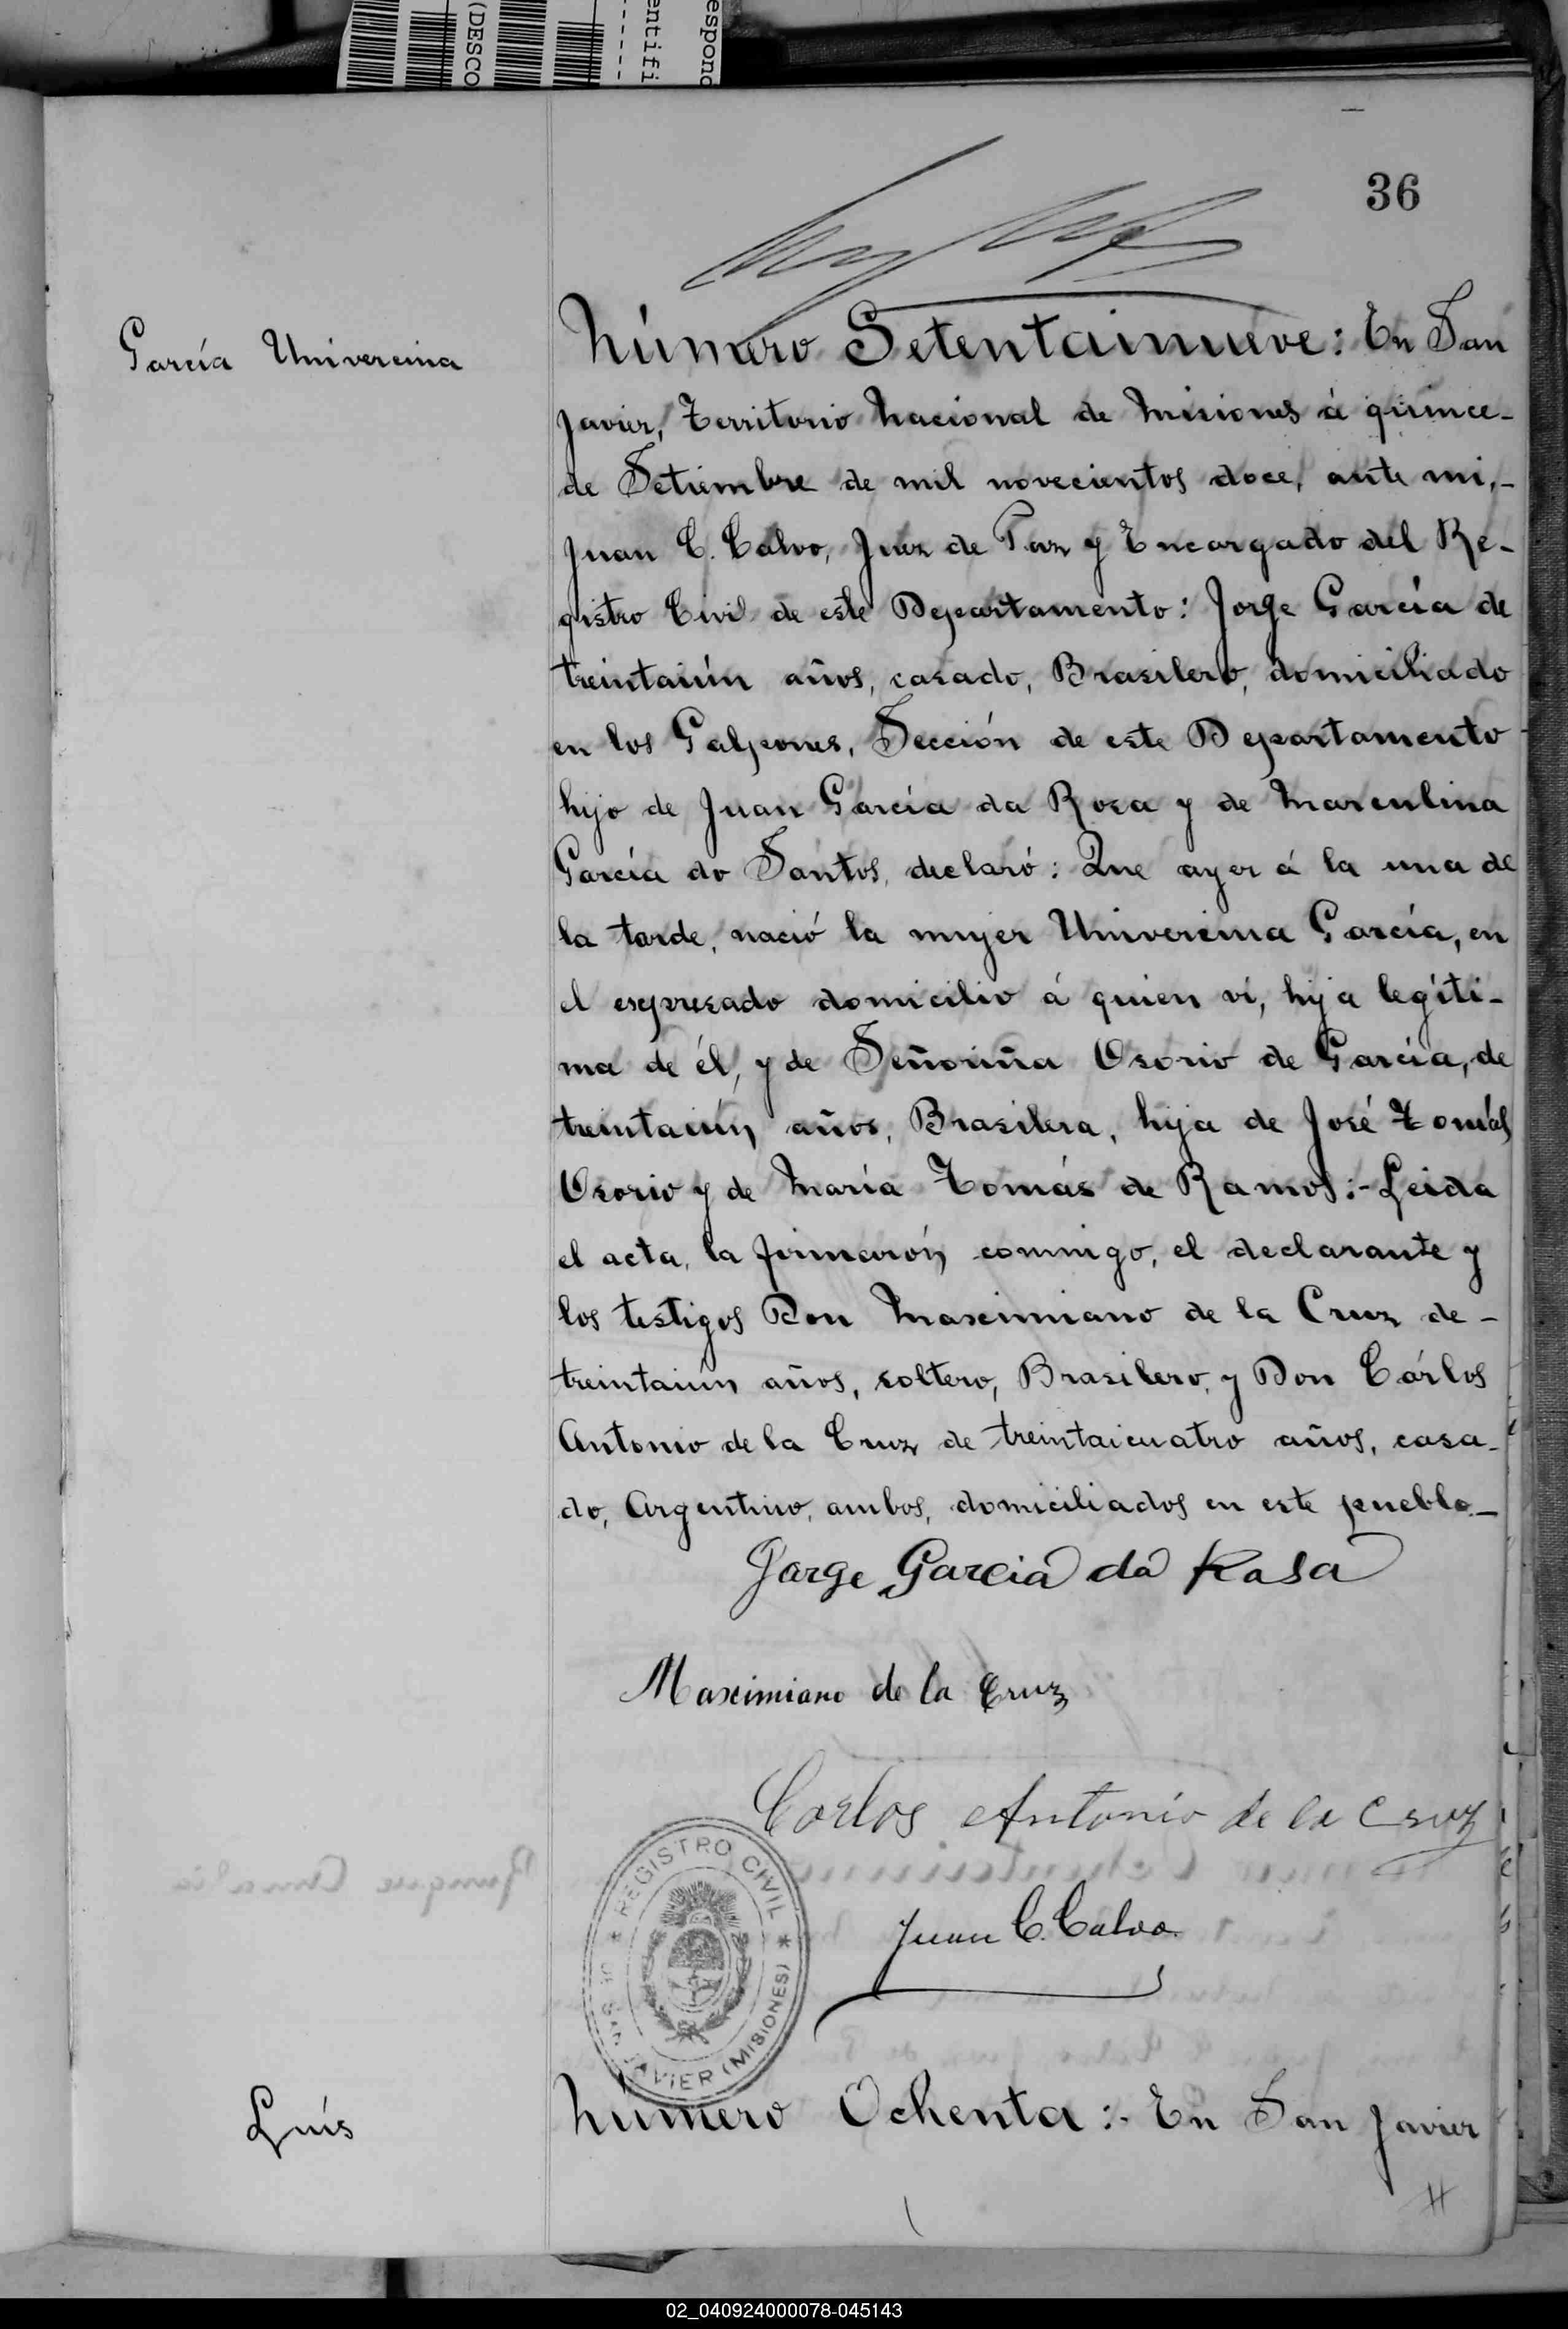 (DESCO
entifi
espond
36
García Univercina
Número Setentainueve: En San
Javier, Territorio Nacional de Misiones á quince-
de Setiembre de mil novecientos doce, ante mi,-
Juan C. Calvo, Juez de Paz y Encargado del Re-
gistro Civil de este Departamento: Jorge García de
treintaiún años, casado, Brasilero, domiciliado
en los Galpones, Sección de este Departamento
hijo de Juan García da Rosa y de Marculina
García do Santos, declaró: Que ayer á la una de
la tarde, nació la mujer Univercina García, en
el espresado domicilio á quien ví, hija legíti-
ma de él, y de Señoriña Osorio de García, de
treintaiún años, Brasilera, hija de José Tomás
Osorio y de María Tomás de Ramos:- Leida
el acta, la firmarón conmigo, el declarante y
los testigos Don Maximiano de la Cruz de-
treintaiún años, soltero, Brasilero, y Don Cárlos
Antonio de la Cruz de treintaicuatro años, casa-
do, Argentino, ambos, domiciliados en este pueblo.-
Jorge Garcia da Rosa
Maximiano de la Cruz
Carlos Antonio de la Cruz
REGISTRO CIVIL
SAN JAVIER (MISIONES)
Juan C. Calvo
Luís
Número Ochenta:- En San Javier
02_040924000078-045143